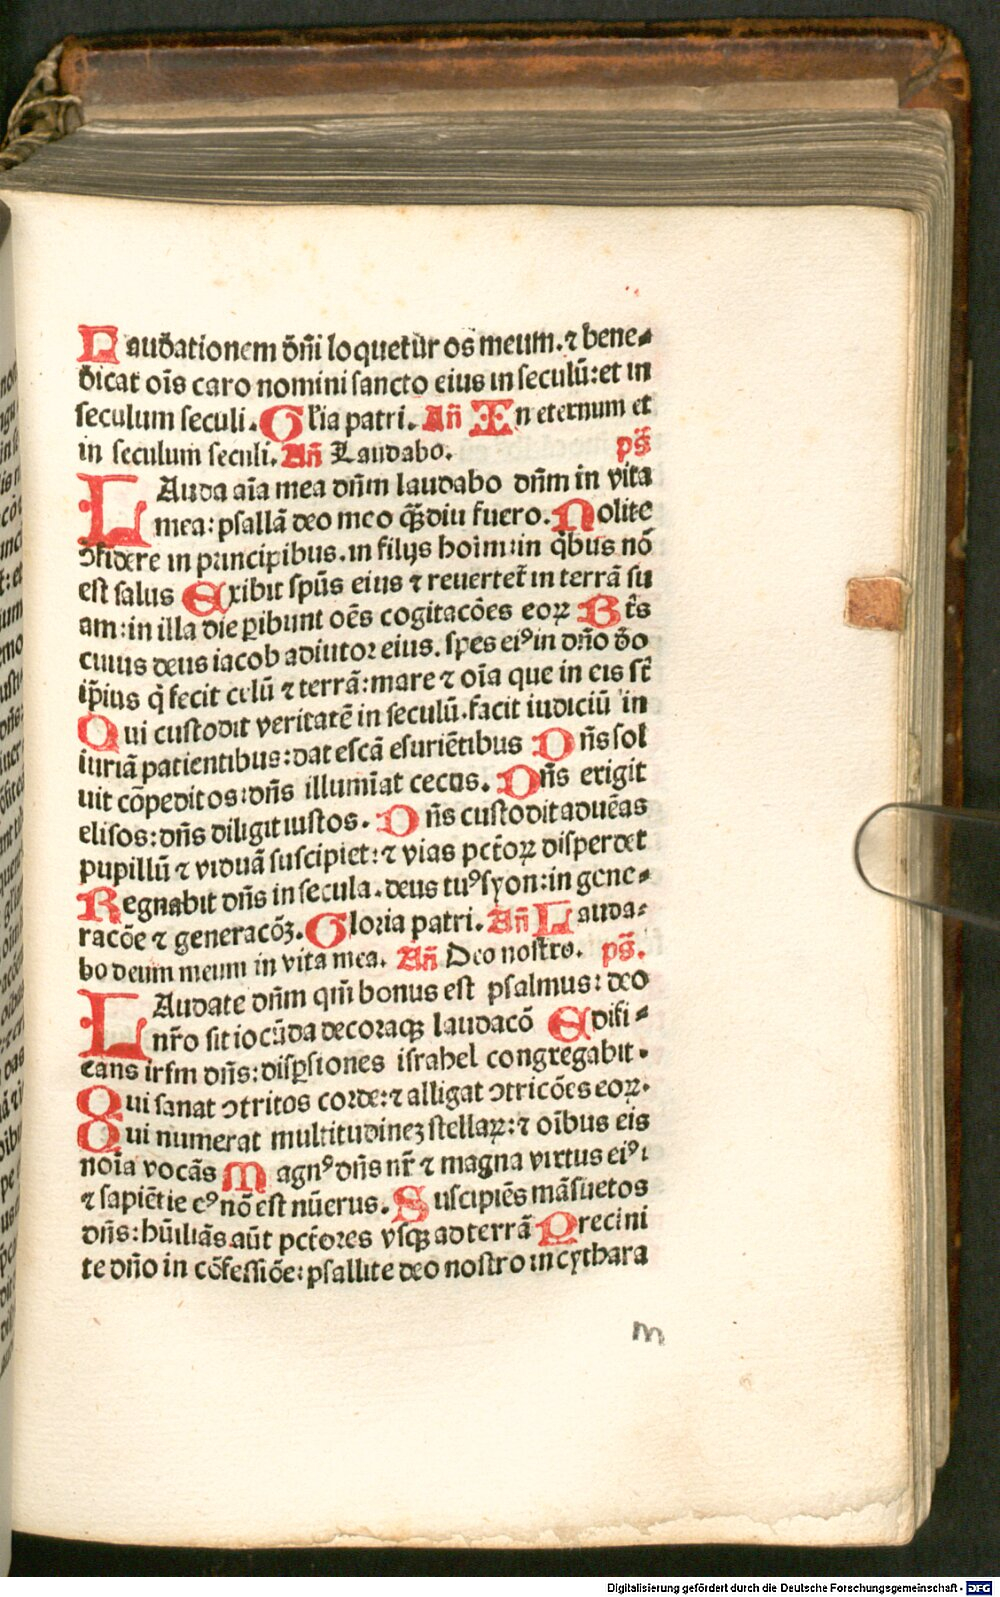 Laudationem dn̄i loquetur os meum. ⁊ bene⸗
dicat oīs caro nomini sancto eius in seculū: et in
seculum seculi. Gl'ia patri. Añ In eternum et
in seculum seculi. Añ Laudabo. ps̄
LAuda aīa mea dn̄m laudabo dn̄m in vita
mea: psallā deo meo q̄ꝫdiu fuero. Nolite
ↄfidere in principibus. in filijs hoīm: in q̄bus nō
est salus Exibit spūs eius ⁊ reuertet̄ in terrā su
am: in illa die ꝑibunt oēs cogitacōes eoꝝ Bt̄s
cuius deus iacob adiutor eius. spes ei⁹ in dn̄o deo
ip̄ius q̄ fecit celū ⁊ terrā: mare ⁊ oīa que in eis st̄
Qui custodit veritatē in seculū. facit iudiciū in
iuriā patientibus: dat escā esuriētibus Dn̄s sol
uit cōpeditos: dn̄s illumīat cecos. Dn̄s erigit
elisos: dn̄s diligit iustos. Dn̄s custodit aduēas
pupillū ⁊ viduā suscipiet: ⁊ vias pctōꝝ disperdet
Regnabit dn̄s in secula. deus tu⁹ syon: in gene⸗
racōe ⁊ generacōꝫ. Gloria patri. Añ Lauda⸗
bo deum meum in vita mea. Añ Deo nostro. ps̄.
LAudate dn̄m qm̄ bonus est psalmus: deo
nr̄o sit iocūda decoraqꝫ laudacō Edifi⸗
cans irl̄m dn̄s: disꝑsiones israhel congregabit.
Qui sanat ↄtritos corde: ⁊ alligat ↄtricōes eoꝝ.
Qui numerat multitudineꝫ stellaꝝ: ⁊ oībus eis
noīa vocās Magn⁹ dn̄s nr̄ ⁊ magna virtus ei⁹:
⁊ sapiētie c⁹ nō est nūerus. Suscipiēs māsuetos
dn̄s: hūiliās aūt pctōres vsqꝫ ad terrā Precini
te dn̄o in cōfessiōe: psallite deo nostro in cythara
m
Digitalisierung gefördert durch die Deutsche Forschungsgemeinschaft - DFG